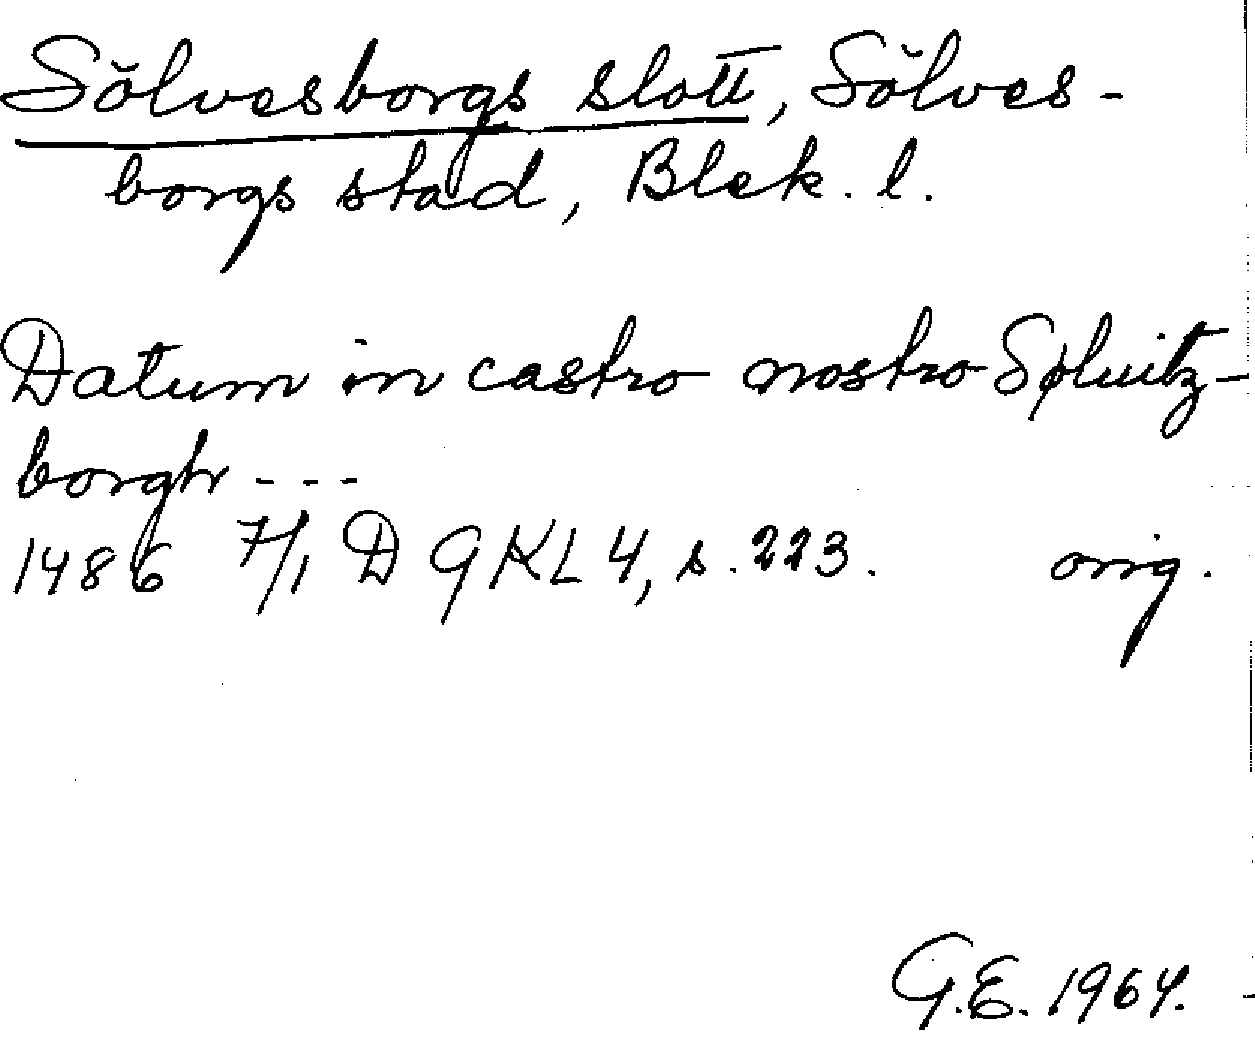 Sölvesborgs slott, Sölves-
borgs stad, Blek. l.
Datum in castro nostro Søluitz-
borgh ---
1486 7/1 D GKL 4, s. 223. orig.
G.E. 1964.